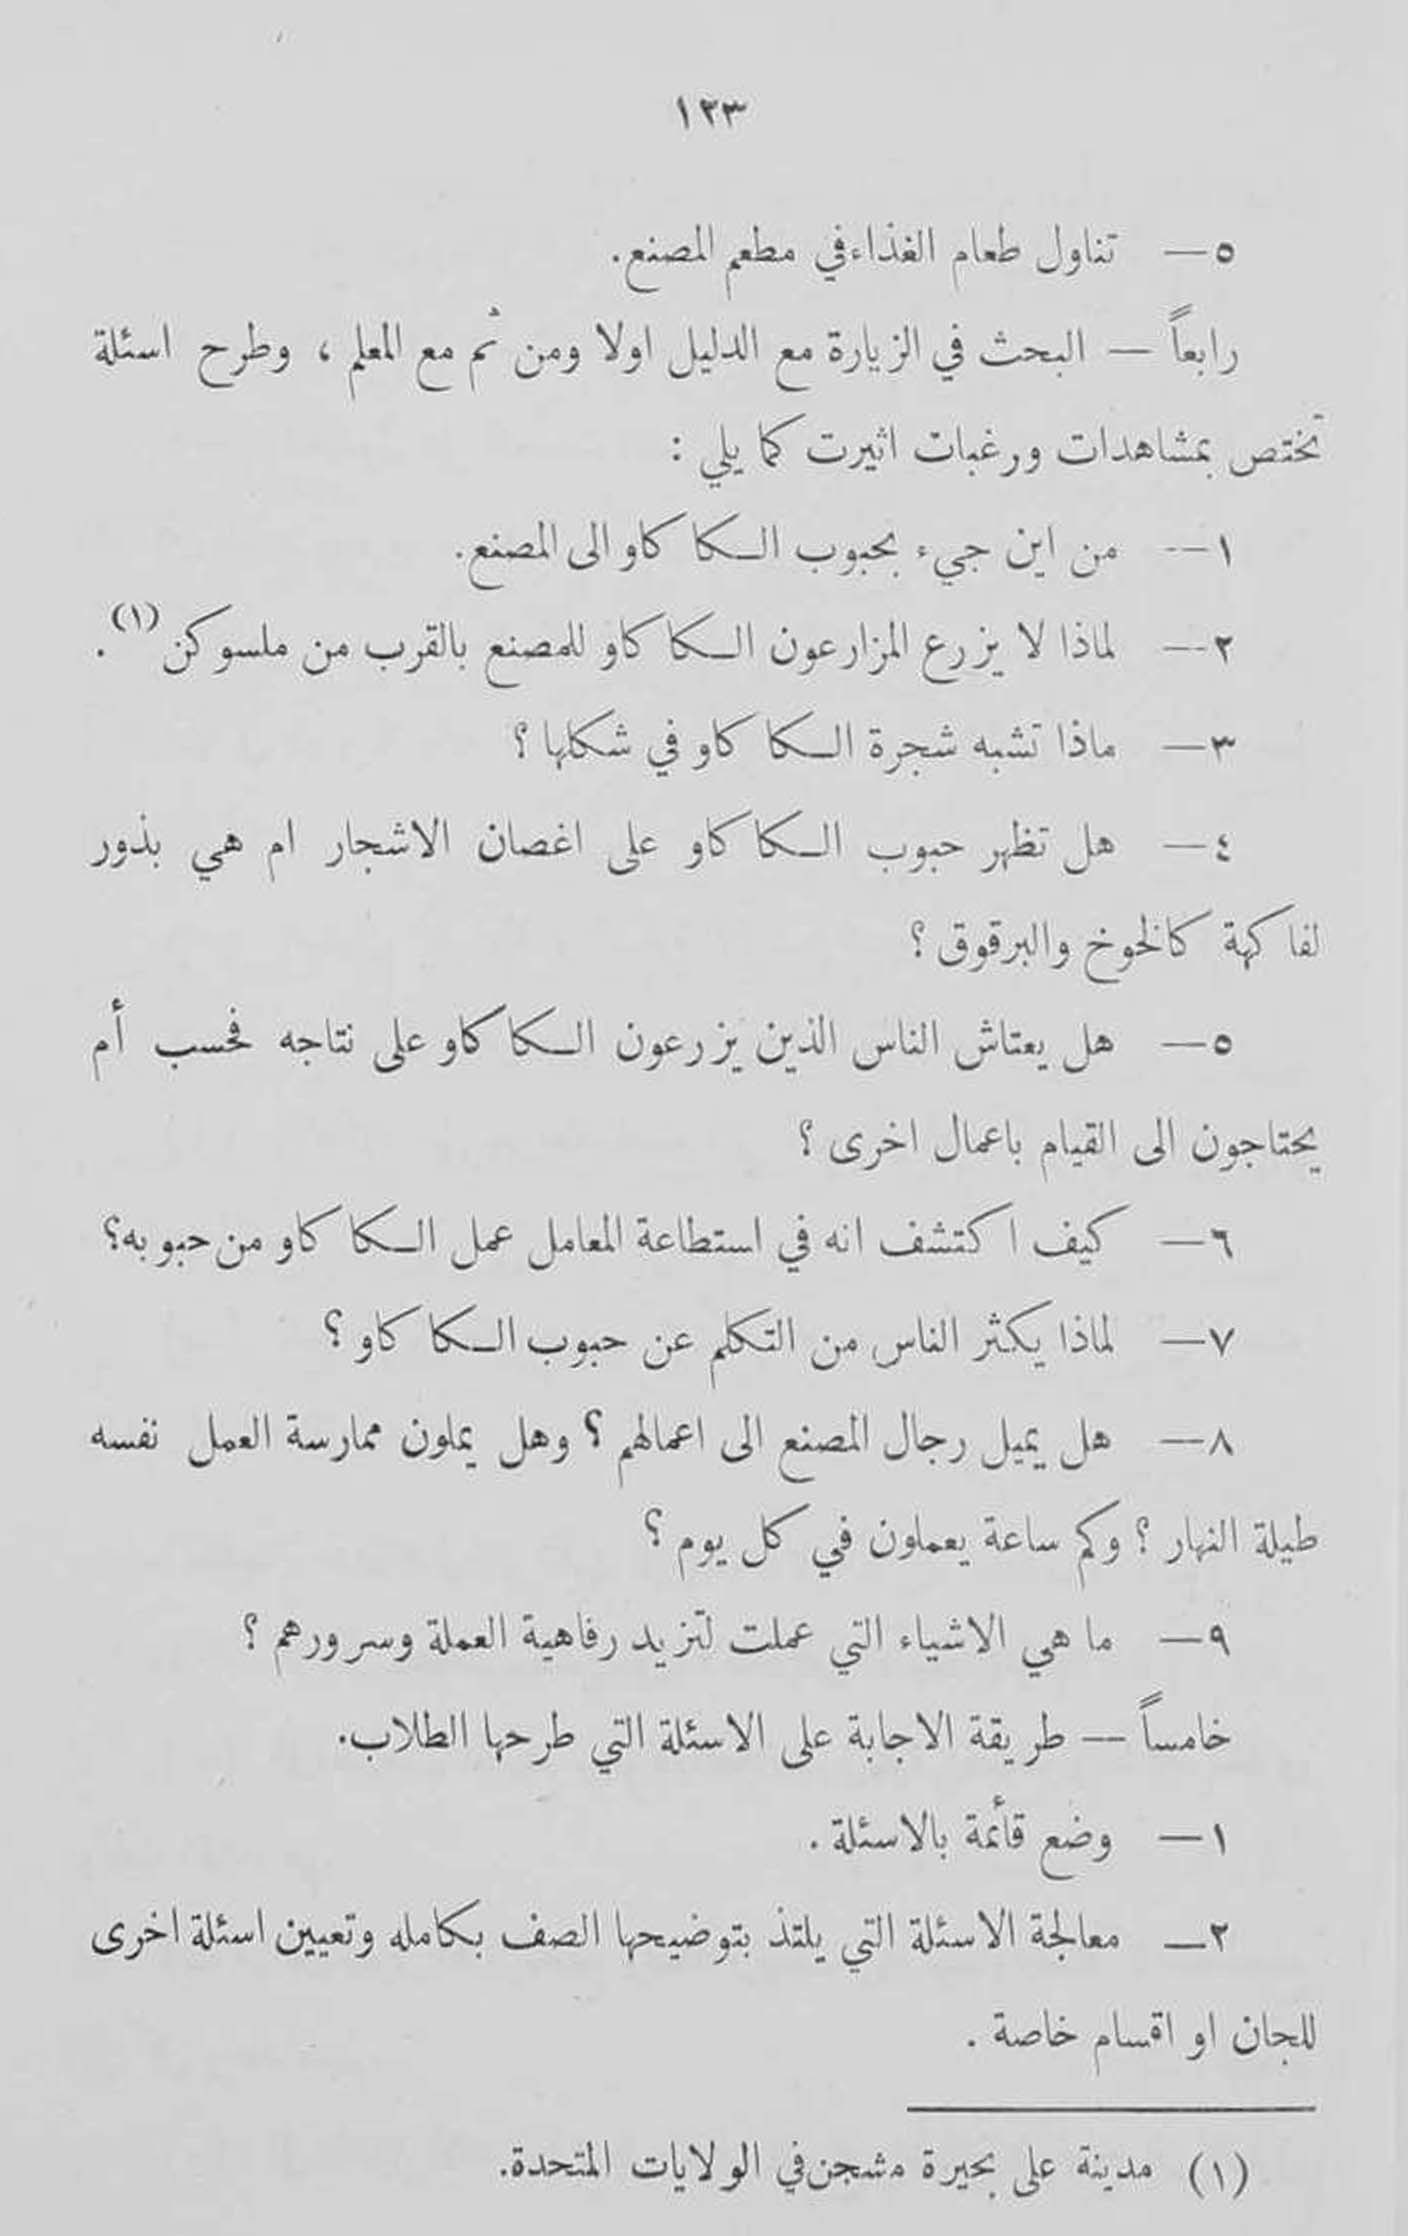 ١٢٣
٥ — تناول طعام الغذاء في مطعم المصنع.
رابعاً — البحث في الزيارة مع الدليل اولا ومن ثم مع المعلم ، وطرح اسئلة
تختص بمشاهدات ورغبات اثيرت كما يلي :
١ — من اين جيء بحبوب الكاكاو الى المصنع.
٢ — لماذا لا يزرع المزارعون الكاكاو للمصنع بالقرب من ملسوكن (١) .
٣ — ماذا تشبه شجرة الكاكاو في شكلها ؟
٤ — هل تظهر حبوب الكاكاو على اغصان الاشجار ام هي بذور
لفاكهة كالخوخ والبرقوق ؟
٥ — هل يعتاش الناس الذين يزرعون الكاكاو على نتاجه فحسب أم
يحتاجون الى القيام باعمال اخرى ؟
٦ — كيف اكتشف انه في استطاعة المعامل عمل الكاكاو من حبوبه؟
٧ — لماذا يكثر الناس من التكلم عن حبوب الكاكاو ؟
٨ — هل يميل رجال المصنع الى اعمالهم ؟ وهل يملون ممارسة العمل نفسه
طيلة النهار ؟ وكم ساعة يعملون في كل يوم ؟
٩ — ما هي الاشياء التي عملت لتزيد رفاهية العملة وسرورهم ؟
خامساً — طريقة الاجابة على الاسئلة التي طرحها الطلاب.
١ — وضع قأئمة بالاسئلة .
٢ — معالجة الاسئلة التي يلتذ بتوضيحها الصف بكامله وتعيين اسئلة اخرى
للجان او اقسام خاصة .
(١) مدينة على بحيرة مشجن في الولايات المتحدة.